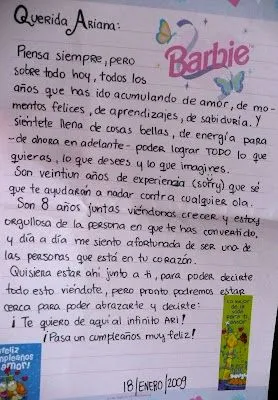 Querida Ariana:
Barbie
Piensa siempre, pero
sobre todo hoy, todos los
años que has ido acumulando de amor, de mo-
mentos felices, de aprendizajes, de sabiduría. Y
siéntete llena de cosas bellas, de energía para
-de ahora en adelante- poder lograr TODO lo que
quieras, lo que desees y lo que imagines.
Son veintiun años de experiencia (sorry) que sé
que te ayudarán a nadar contra cualquier ola.
Son 8 años juntas viéndonos crecer y estoy
orgullosa de la persona en que te has convertido,
y día a día me siento afortunada de ser una de
las personas que está en tu corazón.
Quisiera estar ahí junto a ti, para poder decirte
todo esto viéndote, pero pronto podremos estar
cerca para poder abrazarte y decirte:
¡Te quiero de aquí al infinito ARI!
¡Pasa un cumpleaños muy feliz!
Lo mejor
de la
vida
para ti
amor!
feliz
mpleaños
amor!
18/ENERO/2009